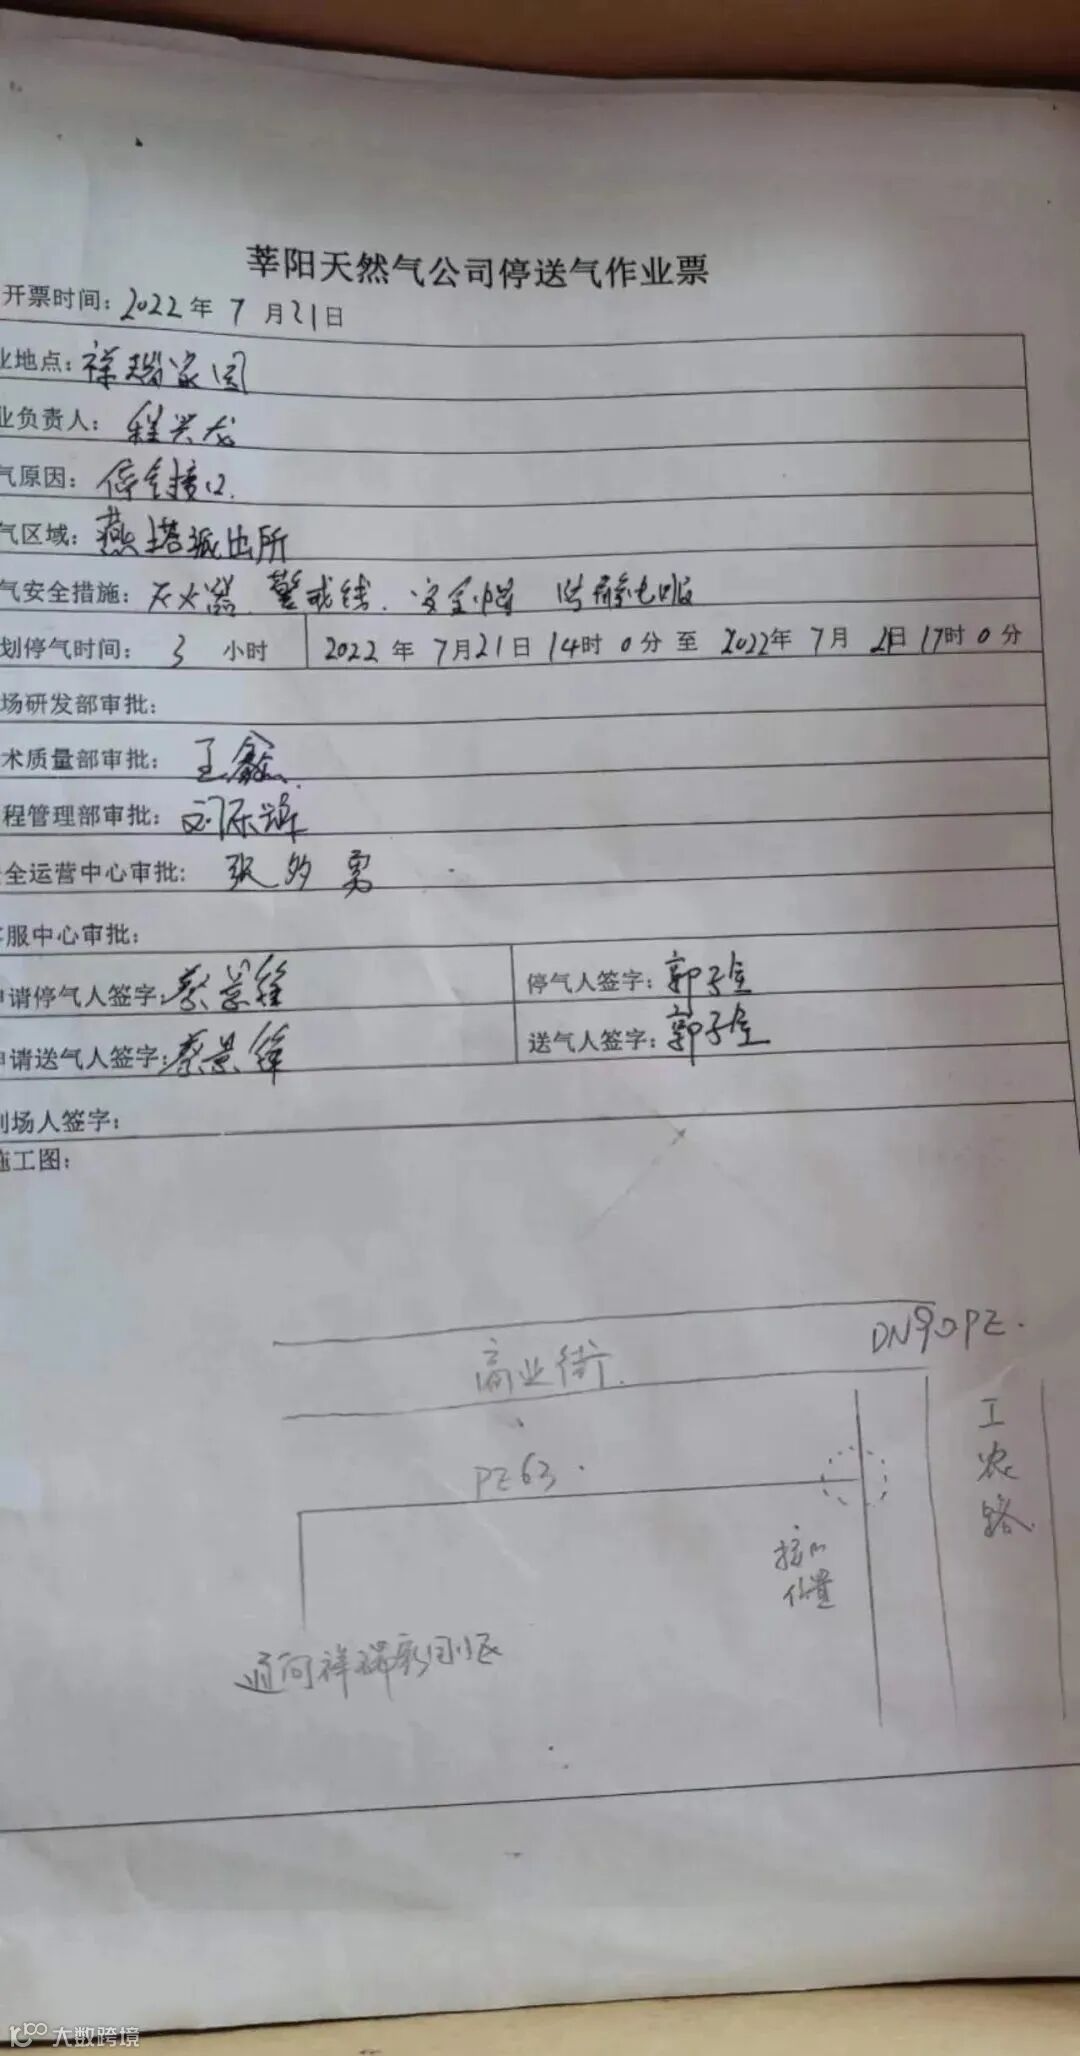 莘阳天然气公司停送气作业票
开票时间：2022年7月21日
业地点：祥瑞家园
业负责人：程兴龙
气原因：停气接口.
气区域：燕塔派出所
气安全措施：灭火器、警戒线、安全帽 防静电服
划停气时间：3 小时 2022年7月21日14时0分至2022年7月21日17时0分
场研发部审批：
术质量部审批：王鑫
程管理部审批：
全运营中心审批：张 勇
服中心审批：
申请停气人签字：蔡景锋 停气人签字：郭子金
申请送气人签字：蔡景锋 送气人签字：郭子金
到场人签字：
施工图：
DN90PZ.
商业街.
工农路
PZ63.
接口位置
通向祥瑞家园小区
大数跨境